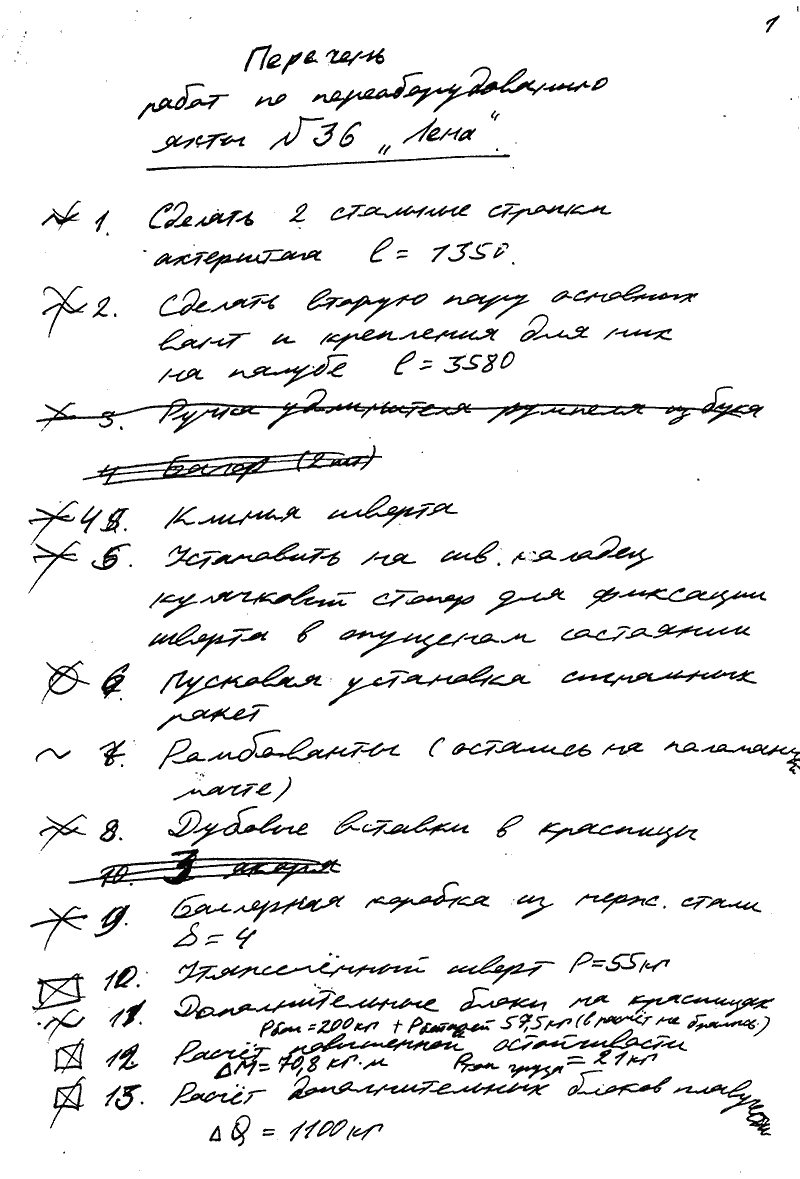 1
Перечень
работ по переоборудованию
яхты №36 „Лена“.
1. Сделать 2 стальные стропки
ахтерштага l = 1350.
2. Сделать вторую пару основных
вант и крепления для них
на палубе l = 3580
3. Ручка удлинителя румпеля из бука
4 Багор (2 шт)
4. Клинья шверта
5. Установить на шв. колодец
кулачковый стопор для фиксации
шверта в опущеном состоянии
6. Пусковая установка сигнальных
ракет
~ 7. Ромбованты (остались на поломанной
мачте)
8. Дубовые вставки в краспицы
10. 3 якоря
9. Баллерная коробка из нерж. стали
S = 4
10. Утяжелённый шверт P=55кг
11. Дополнительные блоки на краспицах
Pбал = 200кг + 57,5кг (в расчёт не брались)
12 Расчёт повышенной остойчивости
ΔM = 70,8 кг·м Pдоп груза = 21кг
13. Расчёт дополнительных блоков плавучести
ΔQ = 1100кг